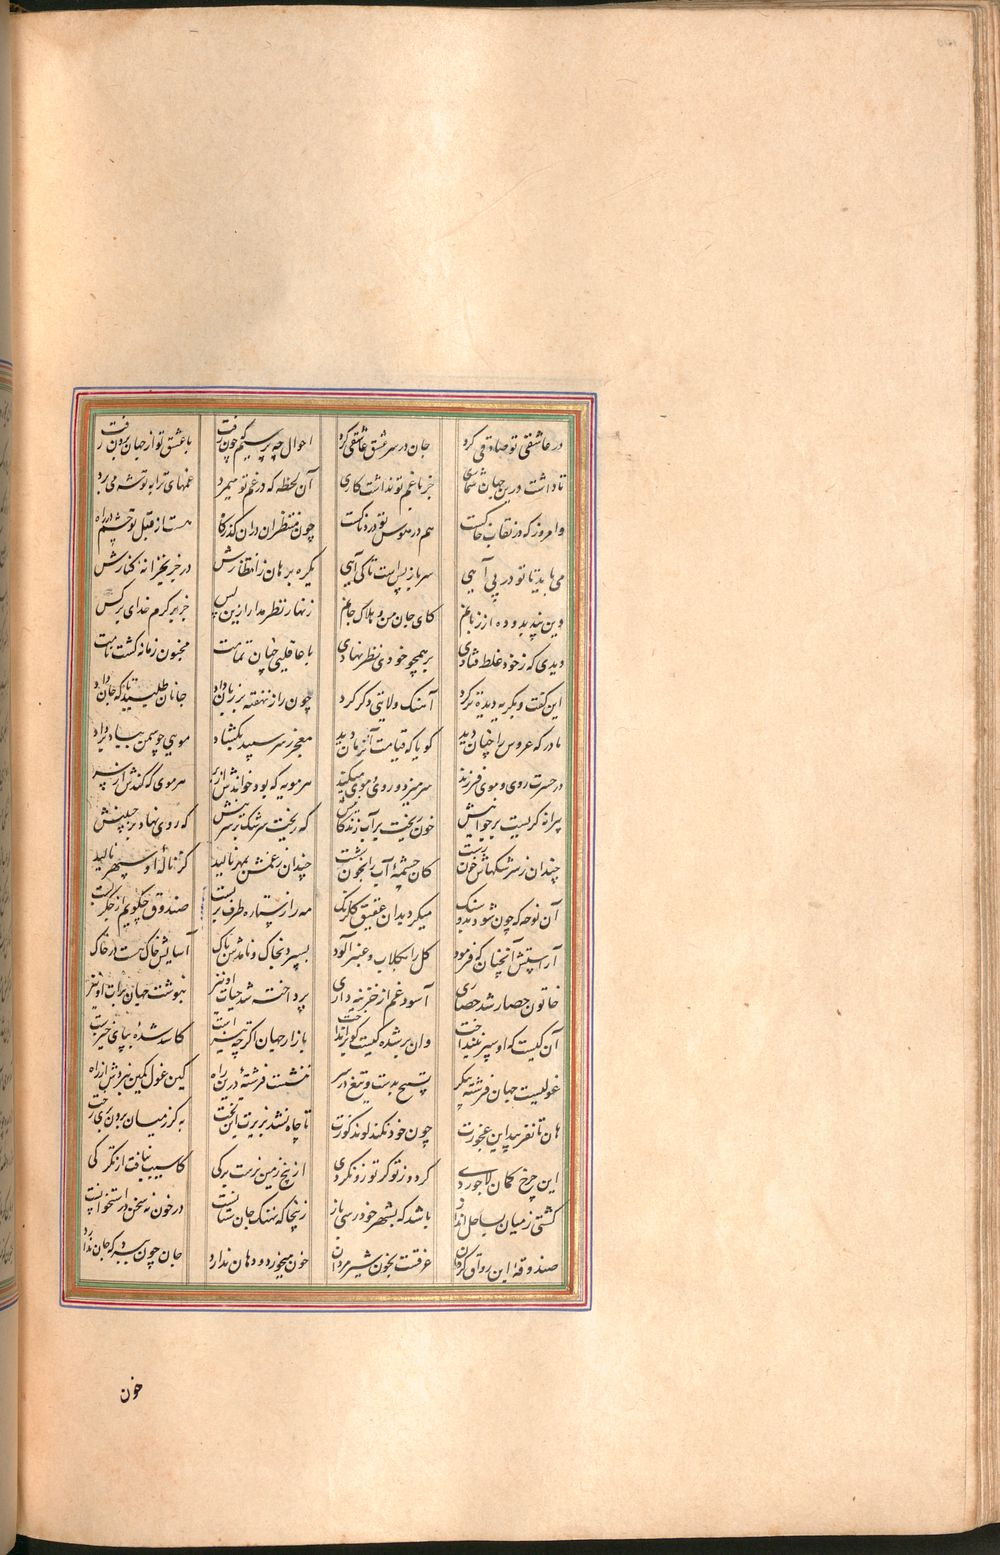 در عاشقی تو صادقی کرد جان در سر عشق عاشقی کرد احوال چه پرسیم که چون رفت با عشق تو از جهان برون رفت
تا داشت درین جهان شماری جز با غم تو نداشت کاری آن لحظه که در غم تو میمرد غمهای ترا به توشه می برد
وامروز که در نقاب خاکست هم در هوس تو دردناکست چون منتظران دران گذرگاه هست از قبل تو چشم در راه
می باید تا تو در پی آیی سر باز پس است تا کی آیی یکره برهان ز انتظارش در خز بخزانه کنارش
از زبانم کای جان من و هلاک جانم زنهار نظر مدار ازین پس جز بر کرم خدای بر کس
دیدی که ز خود غلط فتادی بر همچو خودی نظر نهادی با عاقلیی چنان تمامت مجنون زمانه گشت نامت
این گفت و بگریه دیده تر کرد آهنگ ولایتی دگر کرد چون راز نهفته بر زبان داد جانان طلبید تا که جان داد
مادر که عروس را چنان دید گویا که قیامت آن زمان دید معجر ز سر سپید بگشاد موی چو سمن بباد برداد
در حسرت روی و موی فرزند سر میزد و روی و موی میکند هر مویه که بود خواندش از بر هر موی که کندش از سر
پیرانه گریست بر جوانیش خون ریخت بر آب زندگانیش گه ریخت سرشک بر سرینش گه روی نهاد بر جبینش
چندان ز سرشکهاش خون رست کان چشمه آب را بخون شست چندان ز غمش بمهر نالید کز ناله او سپهر نالید
آن نوحه که خون شود بدو سنگ میکرد بدان عقیق گلرنگ مه را ز ستاره طرف بر بست صندوق چگویم از جگر بست
آراستش آنچنان که فرمود گل را بگلاب و عنبر آلود بسپرد بخاک و نامدش باک آسایش خاک هست در خاک
خاتون حصار شد حصاری آسود غم از خزینه داری پرداخته شد حیات او نیز بنوشت جهان برات او نیز
آن کیست که او سپر نینداخت وان بر شده کیست کو بر انداخت بازار جهان اگر چه تیز است کاسد شده بپای خیزست
غولیست جهان فرشته پیکر تسبیح بدست و تیغ در سر ننشست فرشته درین راه کین غول نبردش از راه
هان تا نفریبد این عجوزت چون خود نکند کبود کوزت تا چاه نشد بزیرت این تخت به کز میان برون بری رخت
این چرخ کمان لاجوردی گردد ز تو گر تو زو نگردی از پنج زمین نرست برگی کاسیب نیافت از تگرگی
کشتی ز میان بساحل انداز باشد که بشهر خود رسی باز زینجا که نهنگ جان ستانست در خون نه سخن در استخوانست
صندوقه این رواق گردان غرقست بخون شیر مردان خون میخورد و دهان ندارد جان چون سپرد که جان ندارد
خون